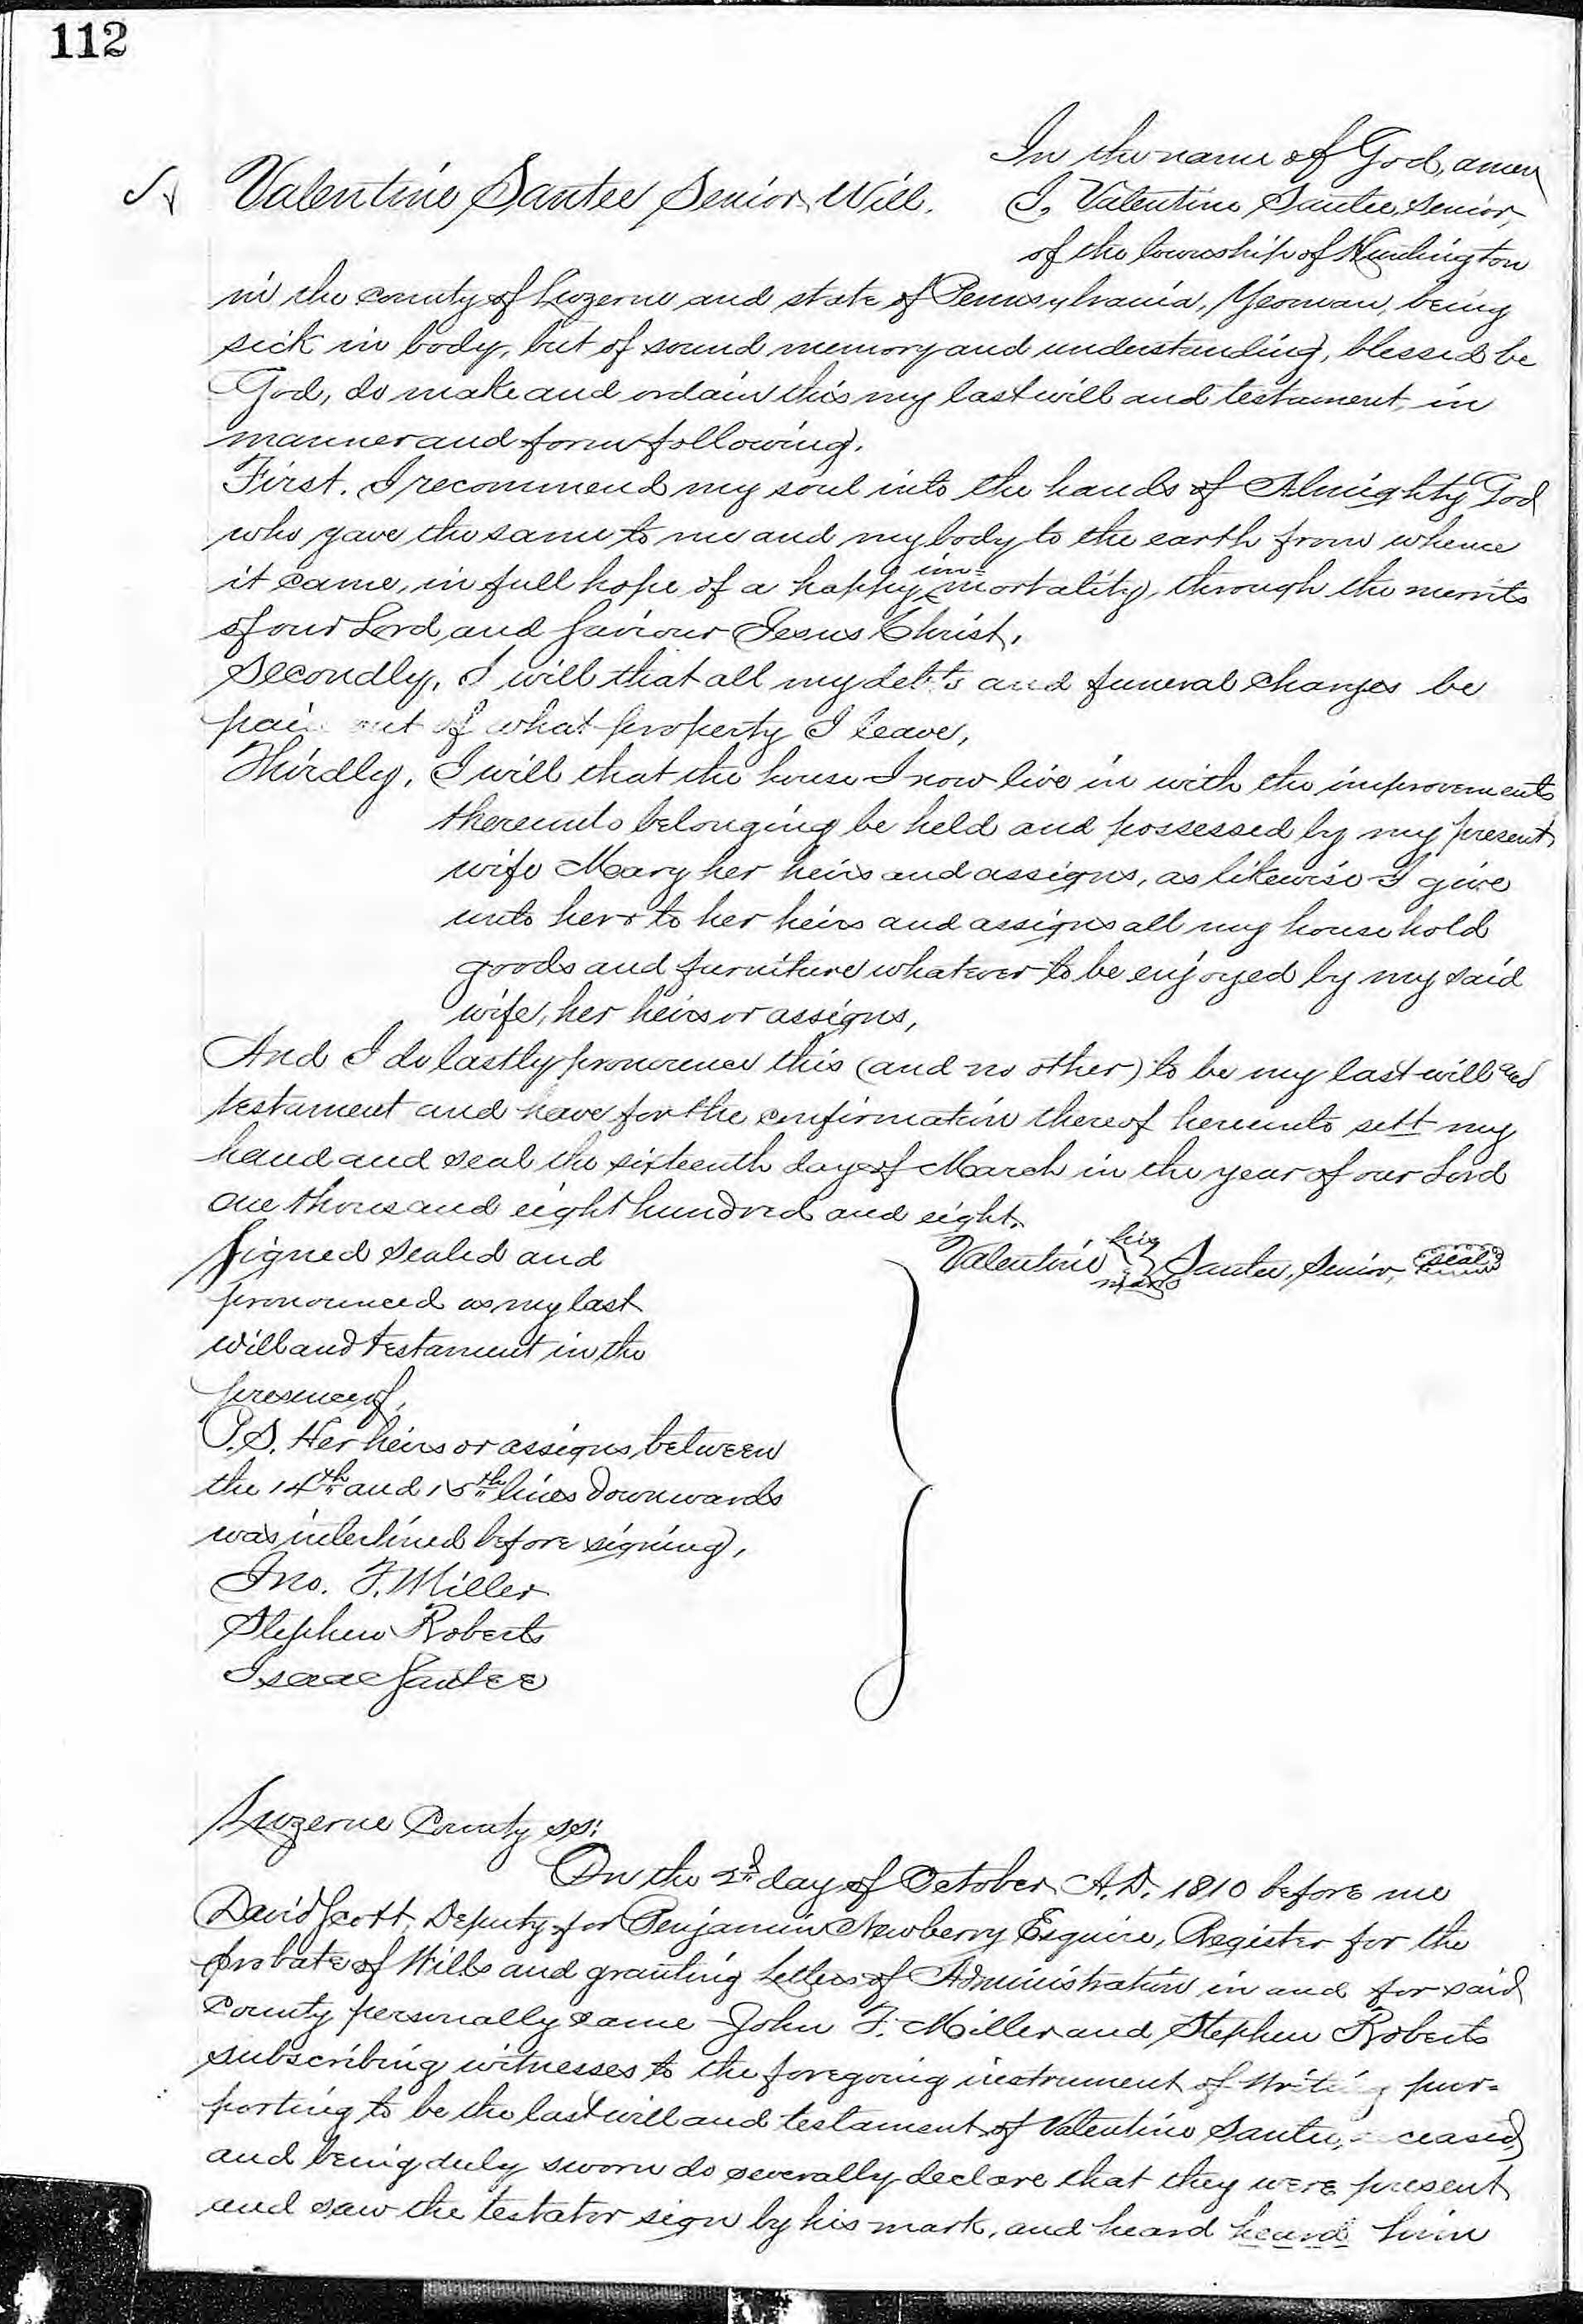 112
In the name of God, amen
Valentine Santee Senior, Will. I, Valentine Santee, Senior,
of the township of Huntington
in the county of Luzerne and state of Pennsylvania, Yeoman, being
sick in body, but of sound memory and understanding, blessed be
God, do make and ordain this my last will and testament, in
manner and form following.
First. I recommend my soul into the hands of Almighty God
who gave the same to me and my body to the earth from whence
it came, in full hope of a happy im=mortality, through the merits
of our Lord and Saviour Jesus Christ.
Secondly, I will that all my debts and funeral charges be
pai out of what property I leave,
Thirdly, I will that the house I now live in with the improvements
thereunto belonging be held and possessed by my present
wife Mary her heirs and assigns, as likewise I give
unto her & to her heirs and assigns all my household
goods and furniture whatever to be enjoyed by my said
wife, her heirs or assigns,
And I do lastly pronounce this (and no other) to be my last will and
testament and have for the confirmation thereof hereunto sett my
hand and seal the sixteenth day of March in the year of our Lord
one thousand eight hundred and eight.
Signed sealed and
his
Valentine Santee, Senior, seal
mark
pronounced as my last
will and testament in the
presence of,
P.S. Her heirs or assigns, between
the 14th and 15th lines downwards
was interlined before signing,
Jno. F. Miller
Stephen Roberts
Isaac Santee
Luzerne County ss:
On the 2d day of October, A.D. 1810 before me
David Scott, Deputy for Benjamin Newberry Esquire, Register for the
probate of Wills and granting Letters of Administration in and for said
County personally came John F. Miller and Stephen Roberts
subscribing witnesses to the foregoing instrument of Writing pur=
porting to be the last will and testament of Valentine Santee, ceased,
and being duly sworn do severally declare that they were present
and saw the testator sign by his mark, and heard heard him